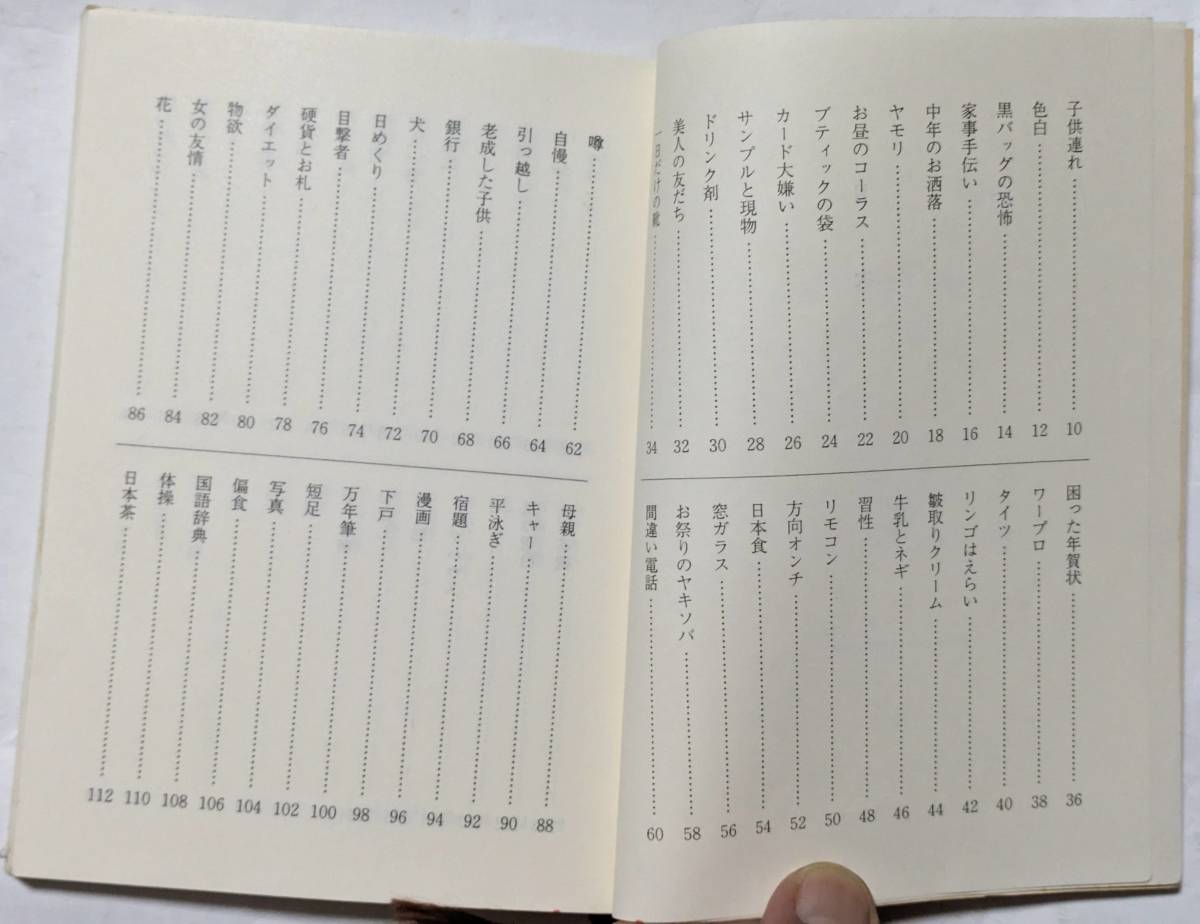 子供連れ……………………10
色白……………………12
黒バッグの恐怖……………………14
家事手伝い……………………16
中年のお洒落……………………18
ヤモリ……………………20
お昼のコーラス……………………22
ブティックの袋……………………24
カード大嫌い……………………26
サンプルと現物……………………28
ドリンク剤……………………30
美人の友だち……………………32
一日だけの靴……………………34
困った年賀状……………………36
ワープロ……………………38
タイツ……………………40
リンゴはえらい……………………42
皺取りクリーム……………………44
牛乳とネギ……………………46
習性……………………48
リモコン……………………50
方向オンチ……………………52
日本食……………………54
窓ガラス……………………56
お祭りのヤキソバ……………………58
間違い電話……………………60
噂……………………62
自慢……………………64
引っ越し……………………66
老成した子供……………………68
銀行……………………70
犬……………………72
日めくり……………………74
目撃者……………………76
硬貨とお札……………………78
ダイエット……………………80
物欲……………………82
女の友情……………………84
花……………………86
母親……………………88
キャー……………………90
平泳ぎ……………………92
宿題……………………94
漫画……………………96
下戸……………………98
万年筆……………………100
短足……………………102
写真……………………104
偏食……………………106
国語辞典……………………108
体操……………………110
日本茶……………………112